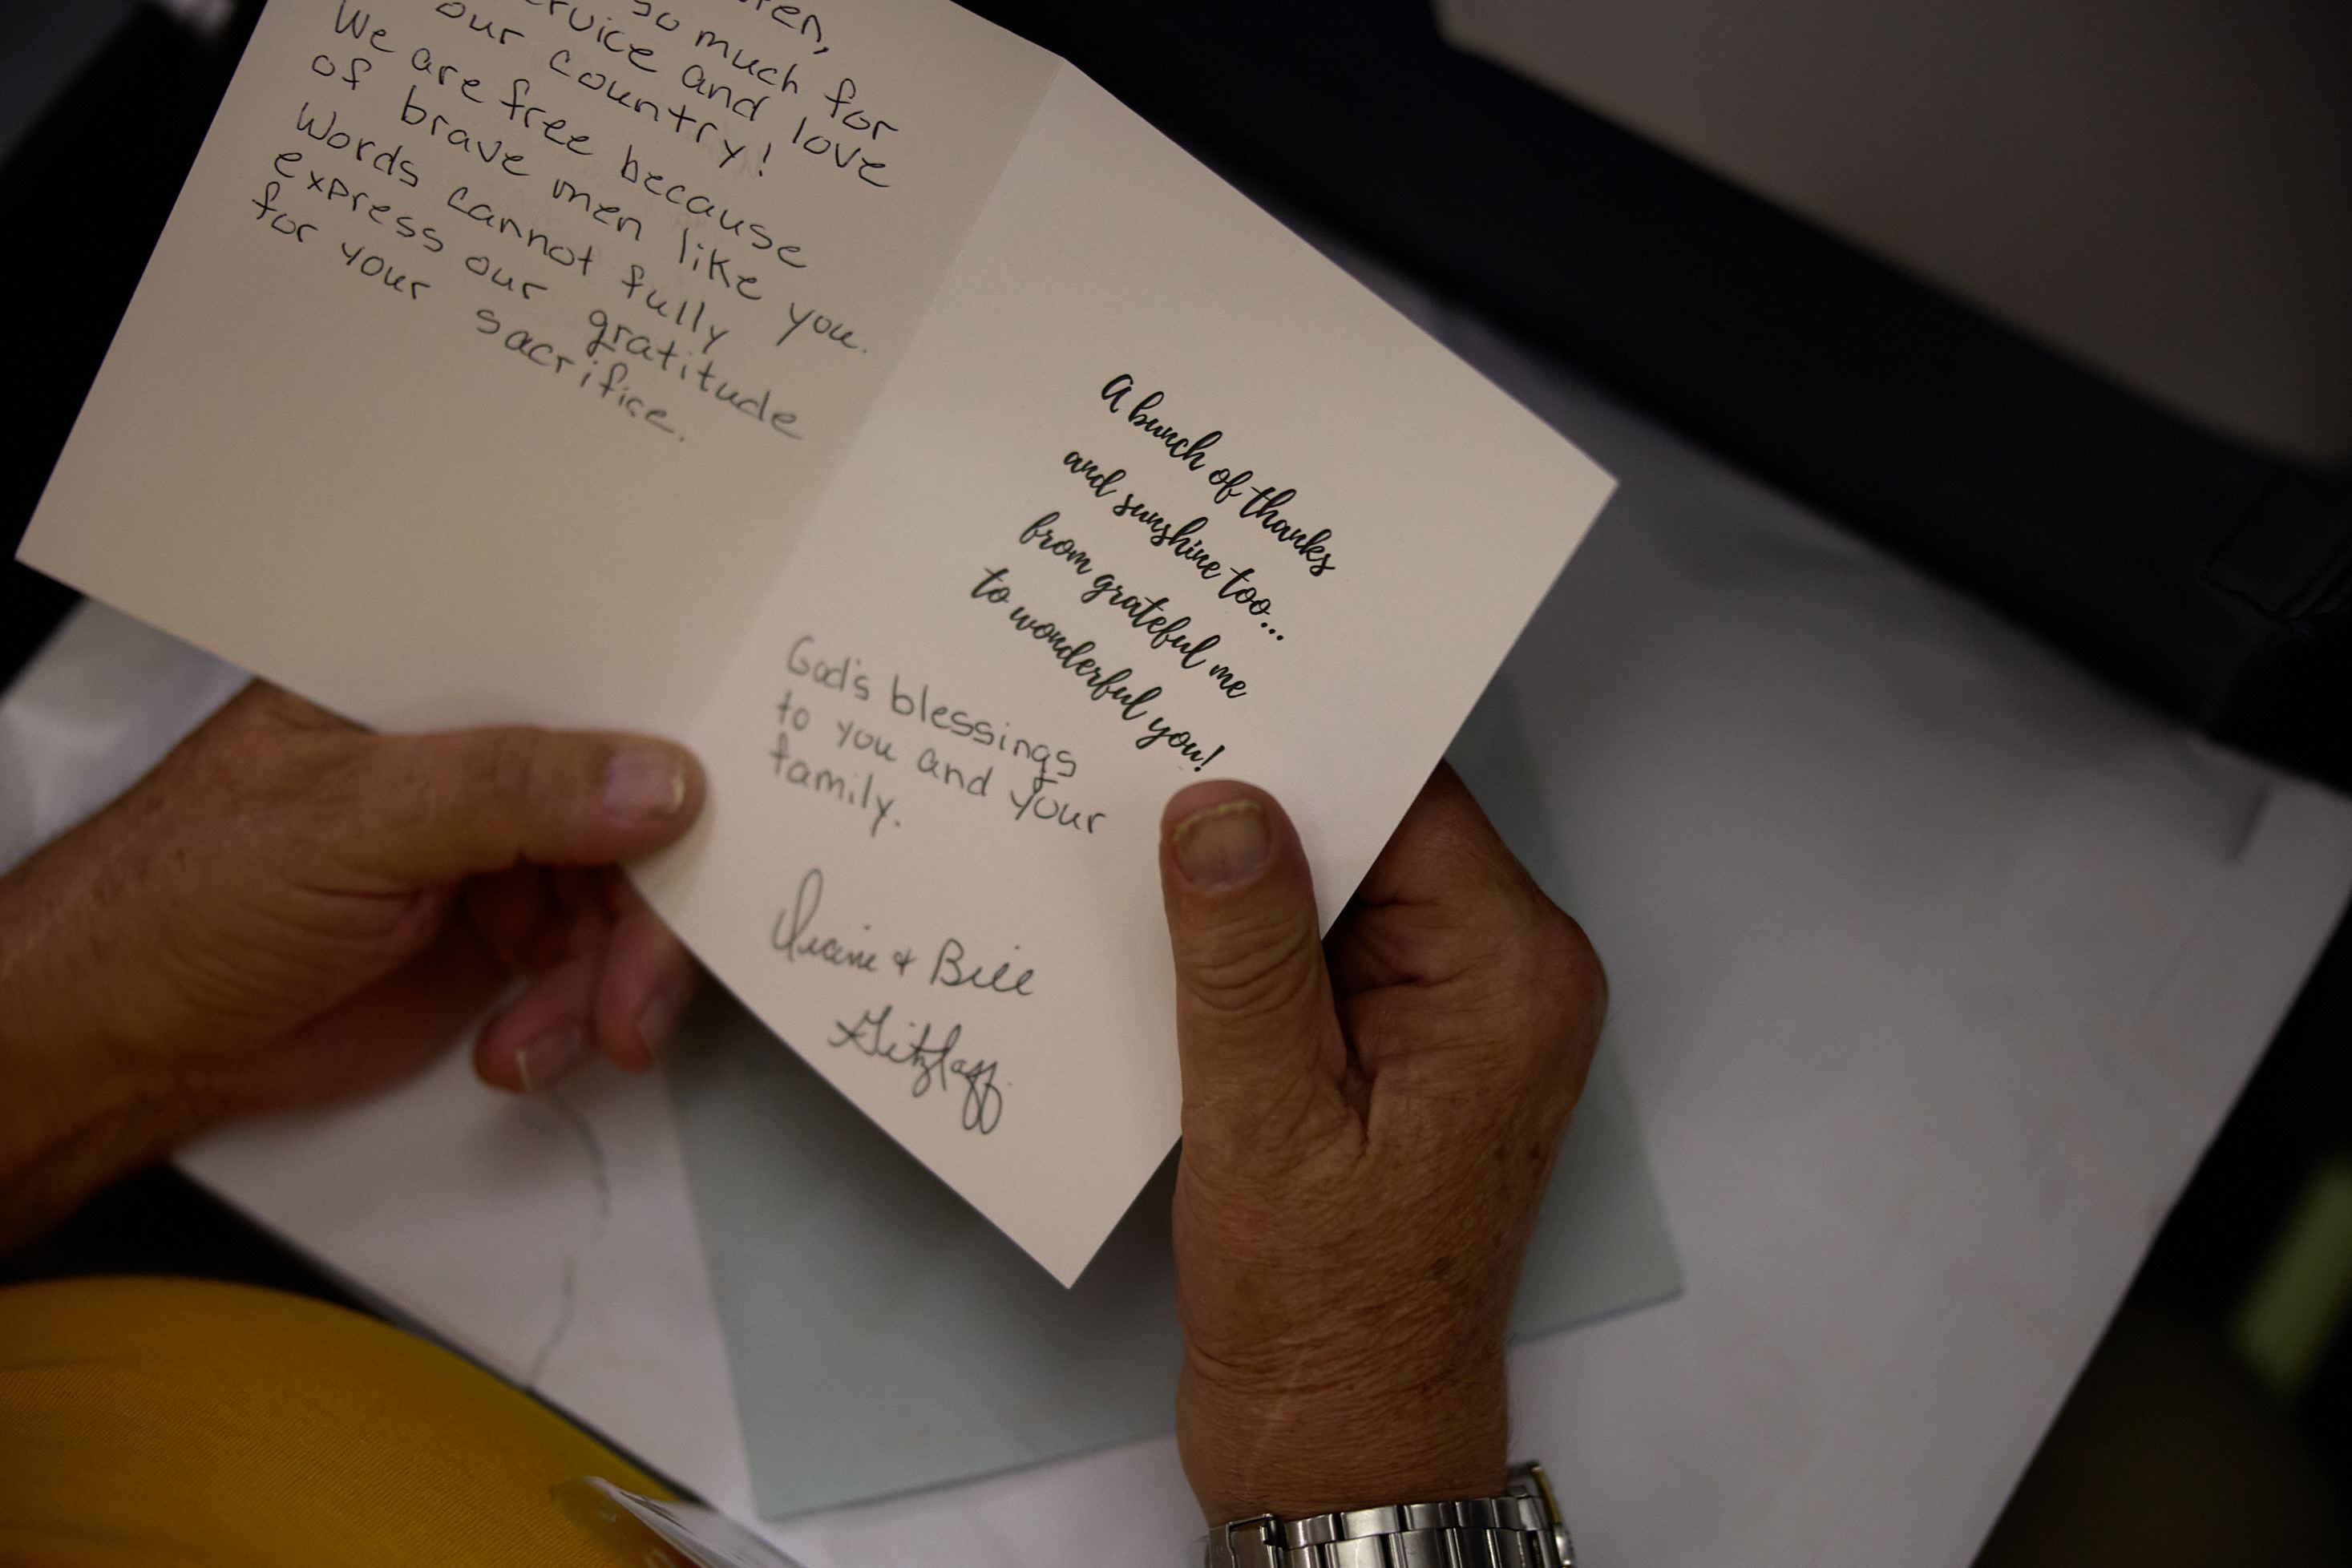 so much for
service and love
our country!
We are free because
of brave men like you.
Words cannot fully
express our gratitude
for your sacrifice.
A bunch of thanks
and sunshine too...
from grateful me
to wonderful you!
God's blessings
to you and your
family.
& Bill
Gitzlaff